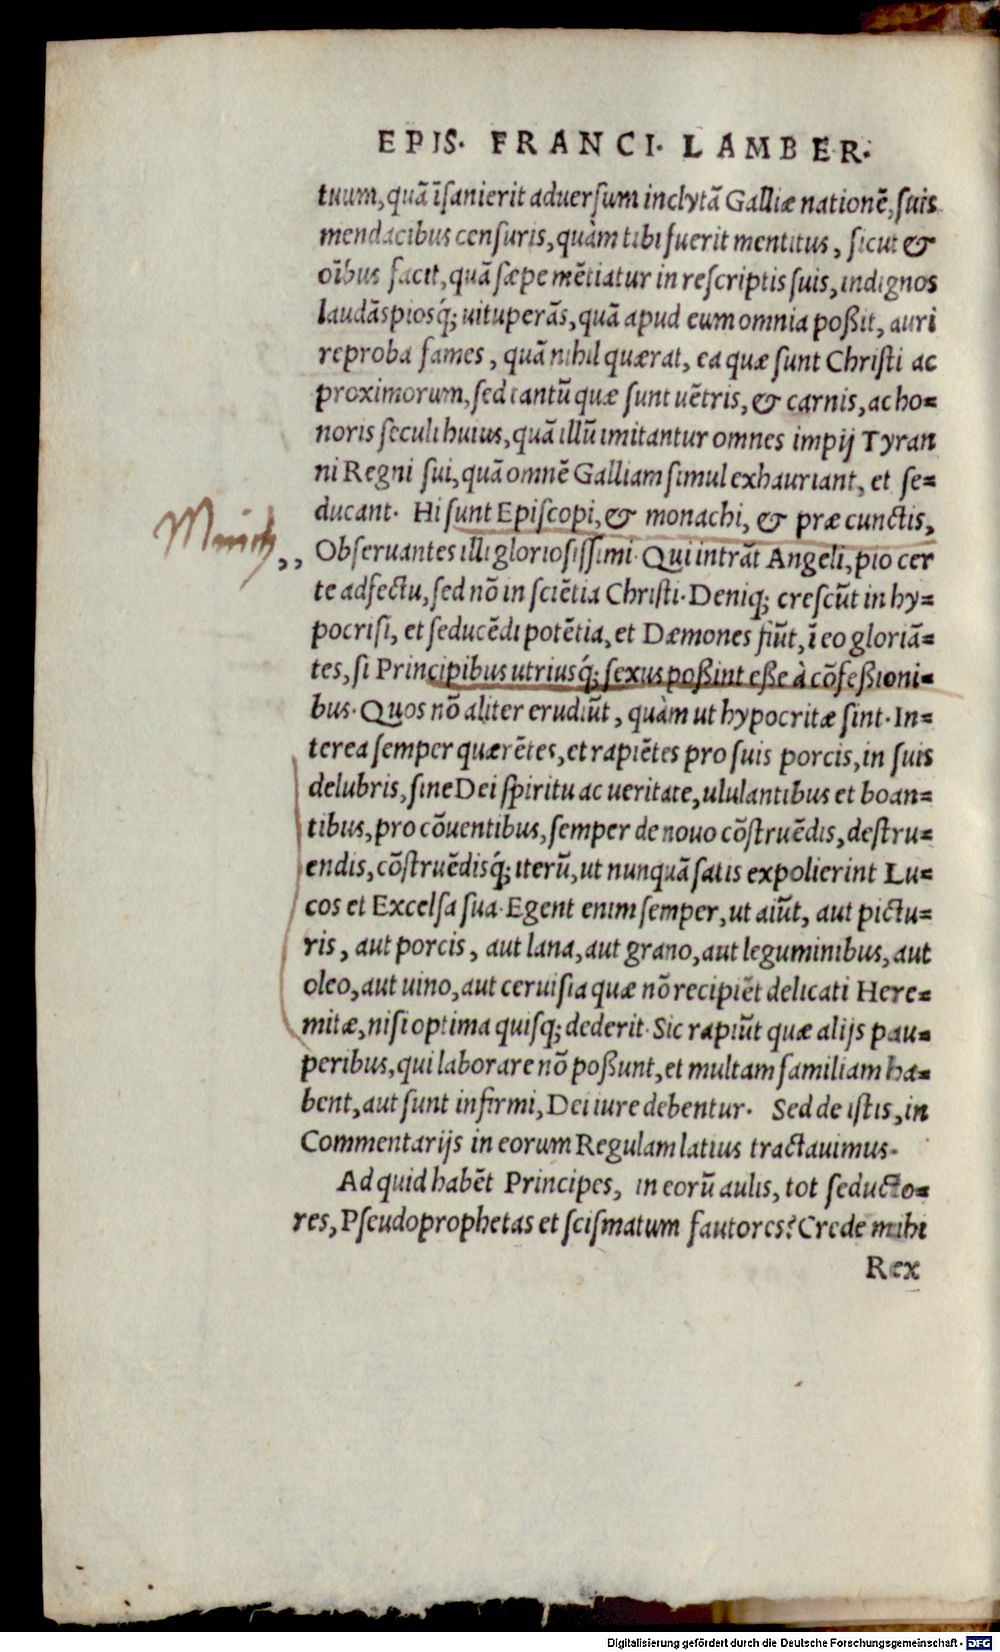 EPIS. FRANCI. LAMBER.
tuum, quā īsanierit aduersum inclytā Galliæ nationē, suis
mendacibus censuris, quàm tibi fuerit mentitus, sicut &
oībus facit, quā sæpe mētiatur in rescriptis suis, indignos
laudās piosq́; uituperās, quā apud eum omnia poßit, auri
reproba fames, quā nihil quærat, ea quæ sunt Christi ac
proximorum, sed tantū quæ sunt uētris, & carnis, ac ho=
noris seculi huius, quā illū imitantur omnes impij Tyran
ni Regni sui, quā omnē Galliam simul exhauriant, et se=
ducant. Hi sunt Episcopi, & monachi, & præ cunctis,
Münch,,
Obseruantes illi gloriosissimi. Qui intrāt Angeli, pio cer
te adfectu, sed nō in sciētia Christi. Deniq; crescūt in hy=
pocrisi, et seducēdi potētia, et Dæmones fiūt, ī eo gloriā=
tes, si Principibus utriusq́; sexus poßint eße à cōfeßioni=
bus. Quos nō aliter erudiūt, quàm ut hypocritæ sint. In=
terea semper quærētes, et rapiētes pro suis porcis, in suis
delubris, sine Dei spiritu ac ueritate, ululantibus et boan=
tibus, pro cōuentibus, semper de nouo cōstruēdis, destru=
endis, cōstruēdisq́; iterū, ut nunquā satis expolierint Lu=
cos et Excelsa sua. Egent enim semper, ut aiūt, aut pictu=
ris, aut porcis, aut lana, aut grano, aut leguminibus, aut
oleo, aut uino, aut ceruisia quæ nō recipiēt delicati Here=
mitæ, nisi optima quisq; dederit. Sic rapiūt quæ alijs pau=
peribus, qui laborare nō poßunt, et multam familiam ha=
bent, aut sunt infirmi, Dei iure debentur. Sed de istis, in
Commentarijs in eorum Regulam latius tractauimus.
Ad quid habēt Principes, in eorū aulis, tot seducto=
res, Pseudoprophetas et scismatum fautores? Crede mihi
Rex
Digitalisierung gefördert durch die Deutsche Forschungsgemeinschaft - DFG